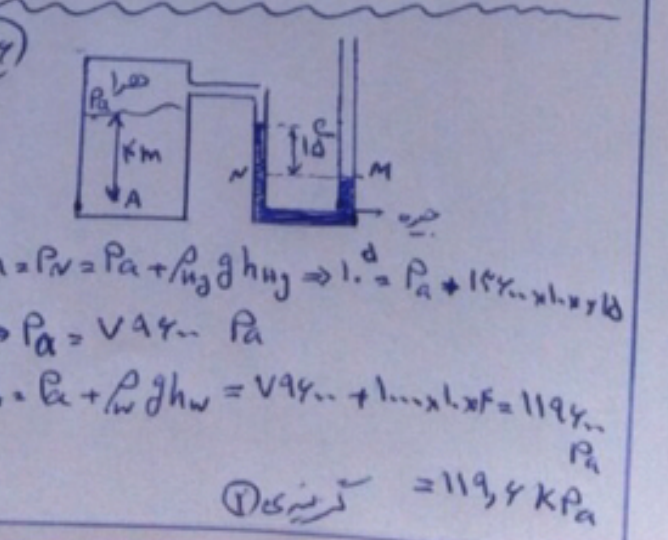 هوا
Pa
۴m
A
۱۵
N
M
جیوه
= P_N = Pa + ρ_Hg g h_Hg ⇒ ۱۰^۵ = Pa + ۱۳۶۰۰×۱۰×۰٫۱۵
⇒ Pa = ۷۹۶۰۰ Pa
= Pa + ρ_w g h_w = ۷۹۶۰۰ + ۱۰۰۰×۱۰×۴ = ۱۱۹۶۰۰
Pa
= ۱۱۹٫۶ kPa
گزینه‌ی ②